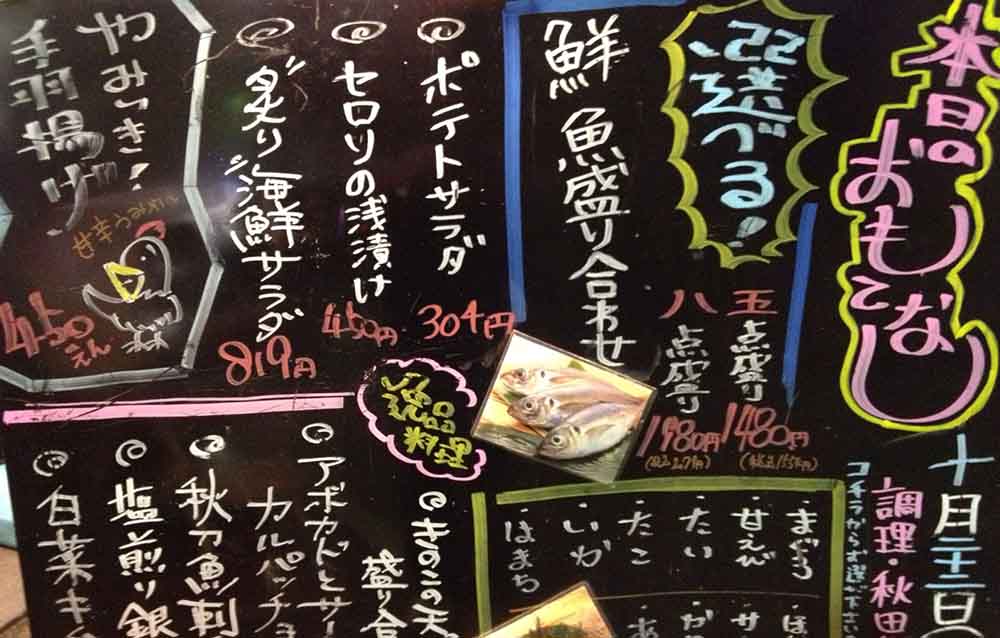 本日の
おもてなし
十月二十二日
調理・秋田
選べる!
鮮魚盛り合わせ
五点盛り
1480円
八点盛り
1980円
・まぐろ
・甘えび
・たい
・たこ
・いか
・はまち
ポテトサラダ
304円
セロリの浅漬け
450円
炙り海鮮サラダ
819円
やみつき!
手羽揚げ
甘辛うみゃい
450えん
逸品
料理
きのこの天
盛り合
アボカドとサー
カルパッチョ
秋刀魚刺
塩煎り銀
白菜キ